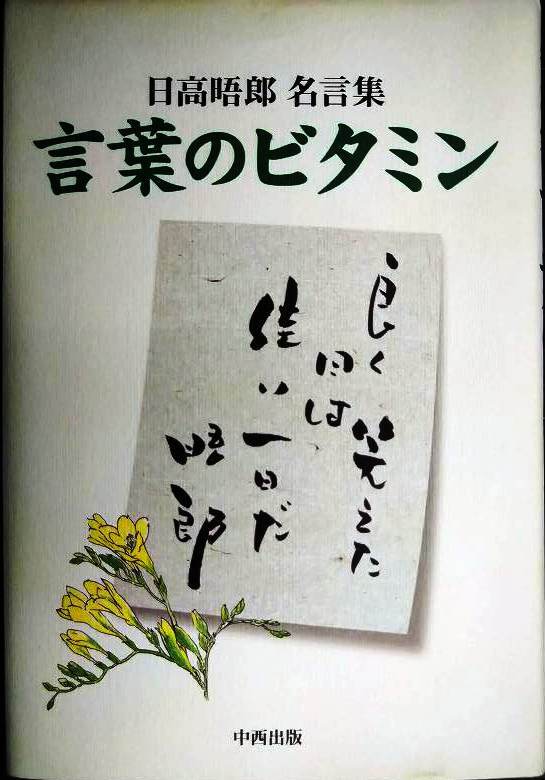 日高晤郎 名言集
言葉のビタミン
良く笑えた
日は
佳い一日だ
晤郎
中西出版